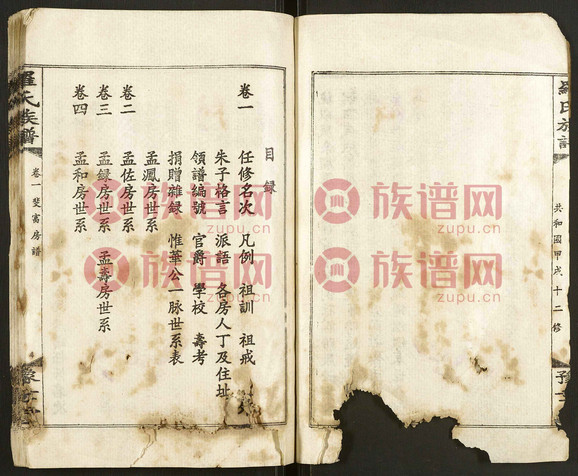 目録
卷一 任修名次 凡例 祖訓 祖戒
朱子格言 派語 各房人丁及住址
領譜編號 官爵 學校 壽考
捐贈雜録 惟華公一脉世系表
孟鳳房世系
卷二 孟佐房世系
卷三 孟録房世系 孟壽房世系
卷四 孟和房世系
羅氏族譜
卷一 斐窩房譜
豫章堂
共和國甲戌十二修
族谱网
zupu.cn
族谱网
zupu.cn
族谱网
zupu.cn
族谱网
zupu.cn